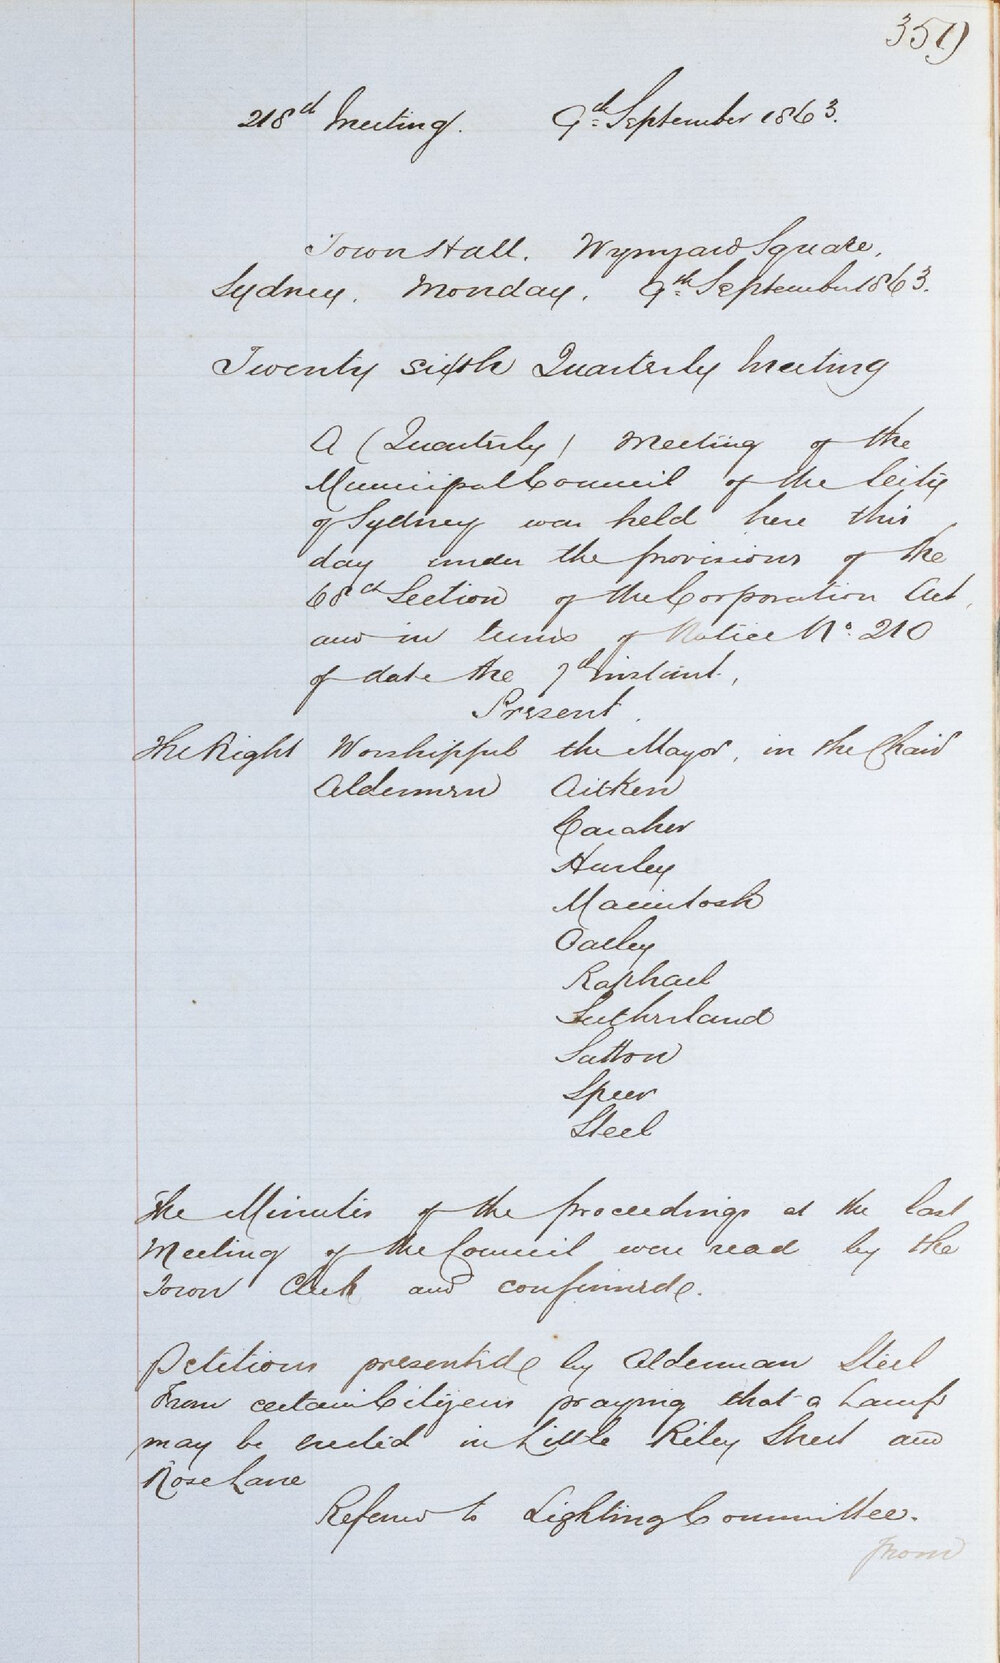 359
218th Meeting. 9th September 1863.
Town Hall. Wynyard Square.
Sydney. Monday. 9th September 1863.
Twenty sixth Quarterly Meeting
A (Quarterly) Meeting of the
Municipal Council of the City
of Sydney was held here this
day under the provisions of the
68th Section of the Corporation Act,
and in terms of Notice No. 210
of date the 7th instant.
Present.
The Right Worshipful the Mayor, in the Chair
Aldermen Aitken
Caraher
Hurley
Macintosh
Oatley
Raphael
Sutherland
Sutton
Speer
Steel
The Minutes of the proceedings at the last
Meeting of the Council were read by the
Town Clerk and confirmed.
Petitions presented by Alderman Steel
From certain Citizens praying that a Lamp
may be erected in Little Riley Street and
Rose Lane
Referred to Lighting Committee.
from